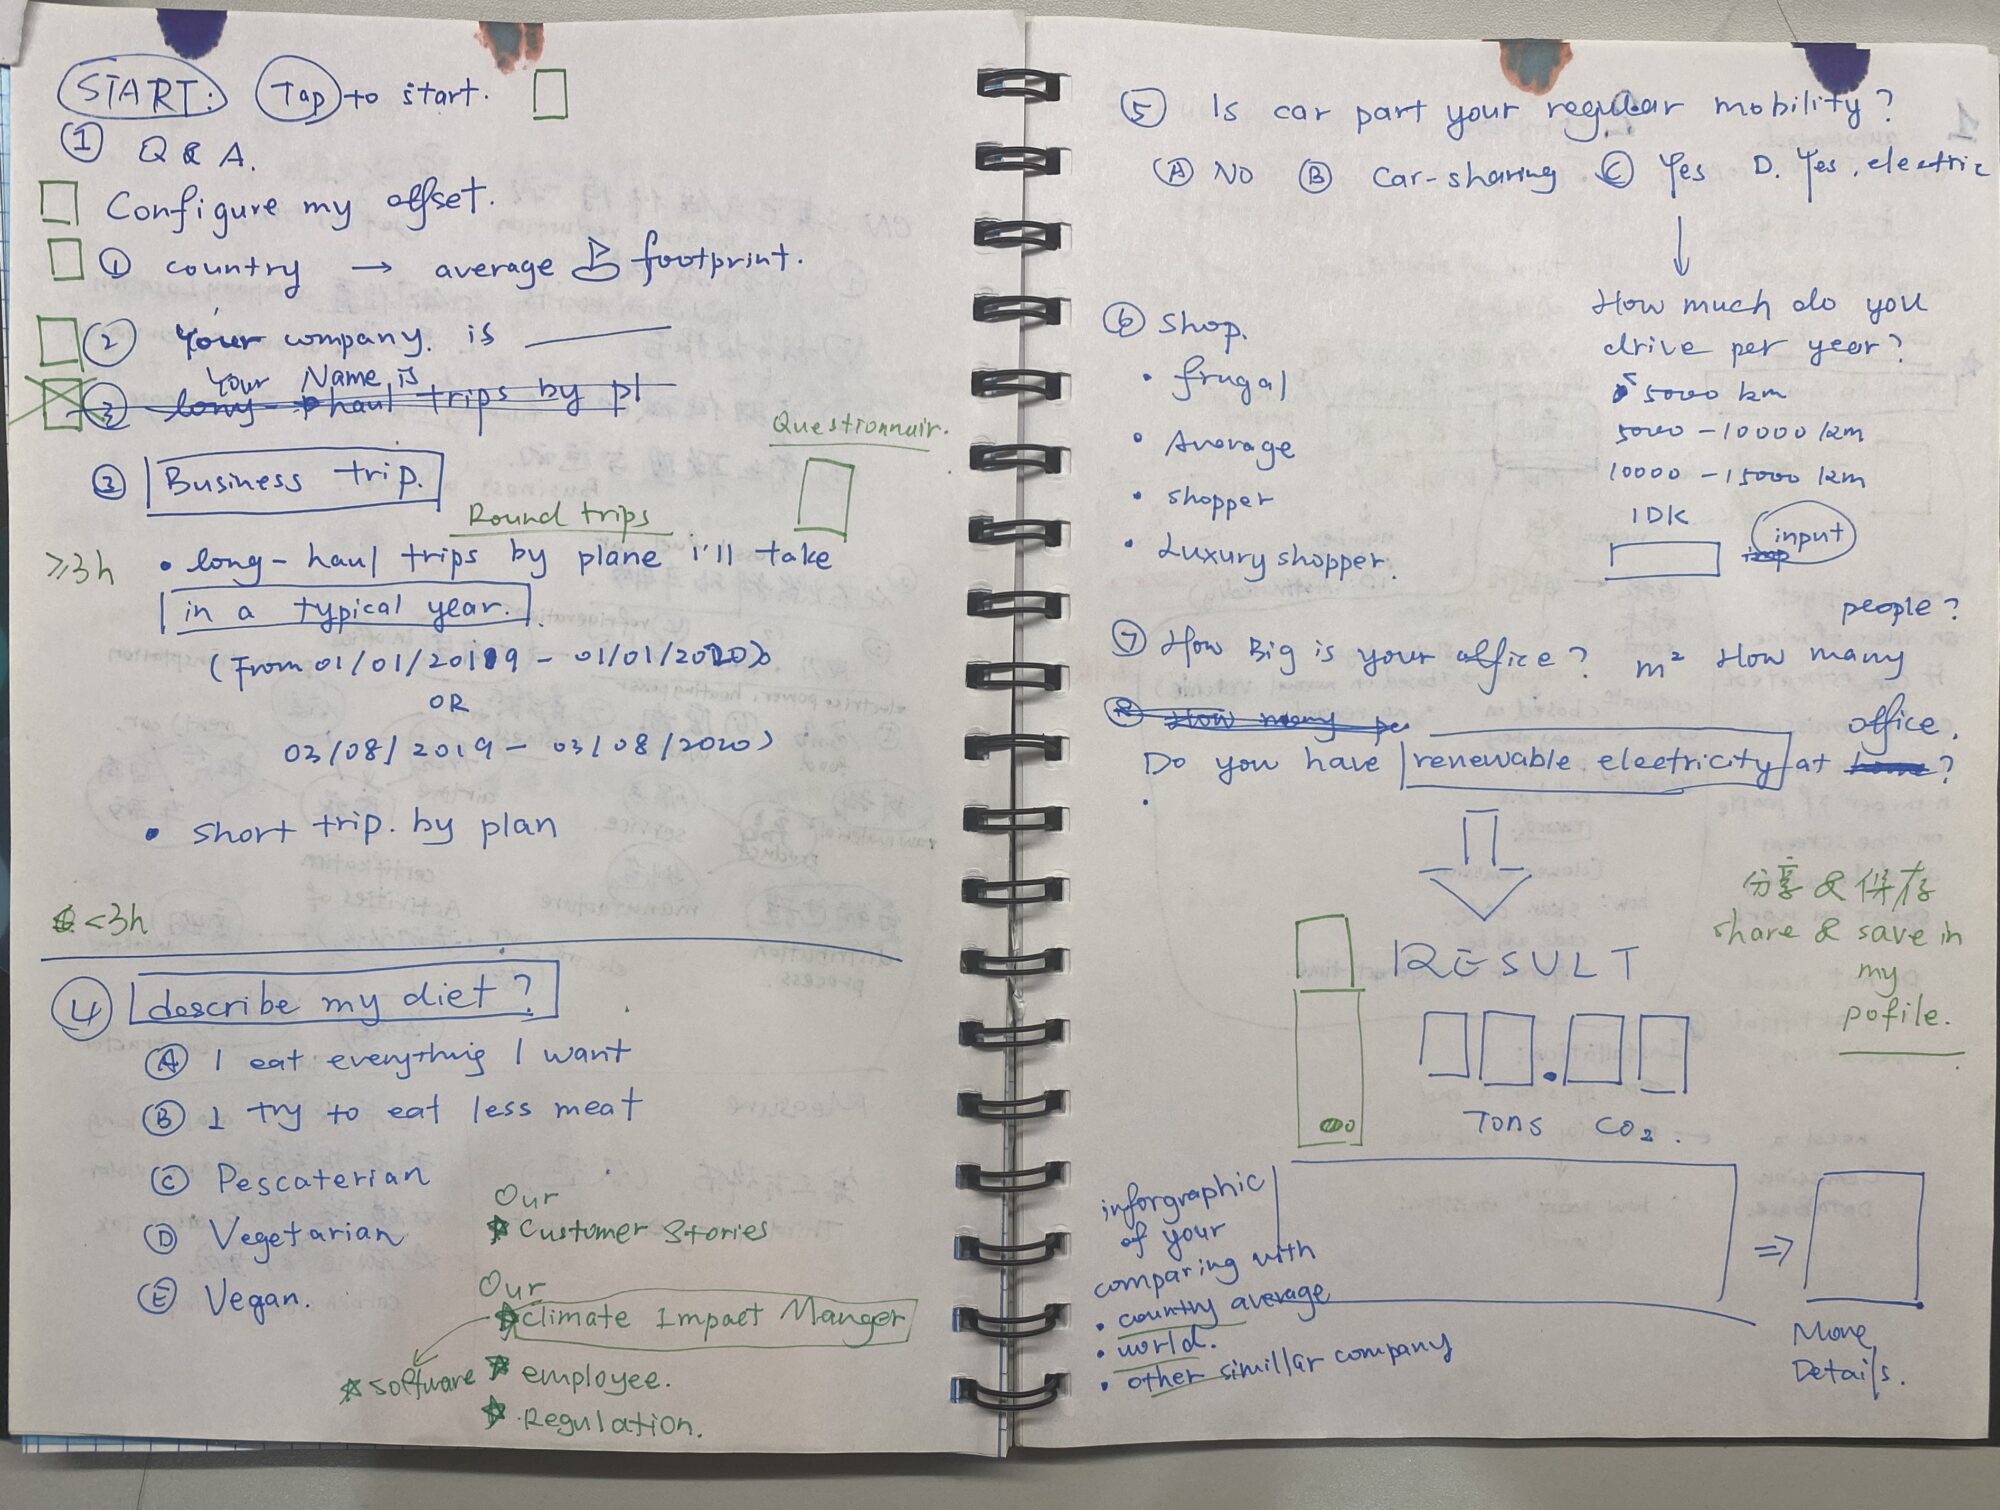 START: Tap to start.
① Q & A.
Configure my offset.
① country → average footprint.
② Your company is ____
Your Name is
③ long-haul trips by pl
Questionnair.
③ Business trip.
Round trips
≥3h • long-haul trips by plane i'll take
in a typical year.
(From 01/01/2019 - 01/01/2020)
OR
03/08/2019 - 03/08/2020)
• short trip. by plan
<3h
④ describe my diet?
Ⓐ I eat everything I want
Ⓑ I try to eat less meat
Ⓒ Pescaterian
Ⓓ Vegetarian
Ⓔ Vegan.
Our
Customer Stories
Our
Climate Impact Manger
software
employee.
Regulation.
⑤ Is car part your regular mobility?
Ⓐ NO Ⓑ Car-sharing Ⓒ Yes D. Yes, electric
How much do you
drive per year?
5000 km
5000 - 10000 km
10000 - 15000 km
IDK
input
⑥ Shop.
• frugal
• Average
• shopper
• Luxury shopper.
people?
⑦ How Big is your office? m² How many
⑧ How many pe
office.
Do you have renewable electricity at home?
RESULT
分享 & 保存
share & save in
my
pofile.
Tons CO₂.
inforgraphic
of your
comparing with
• country average
• world.
• other simillar company
⇒
More
Details.